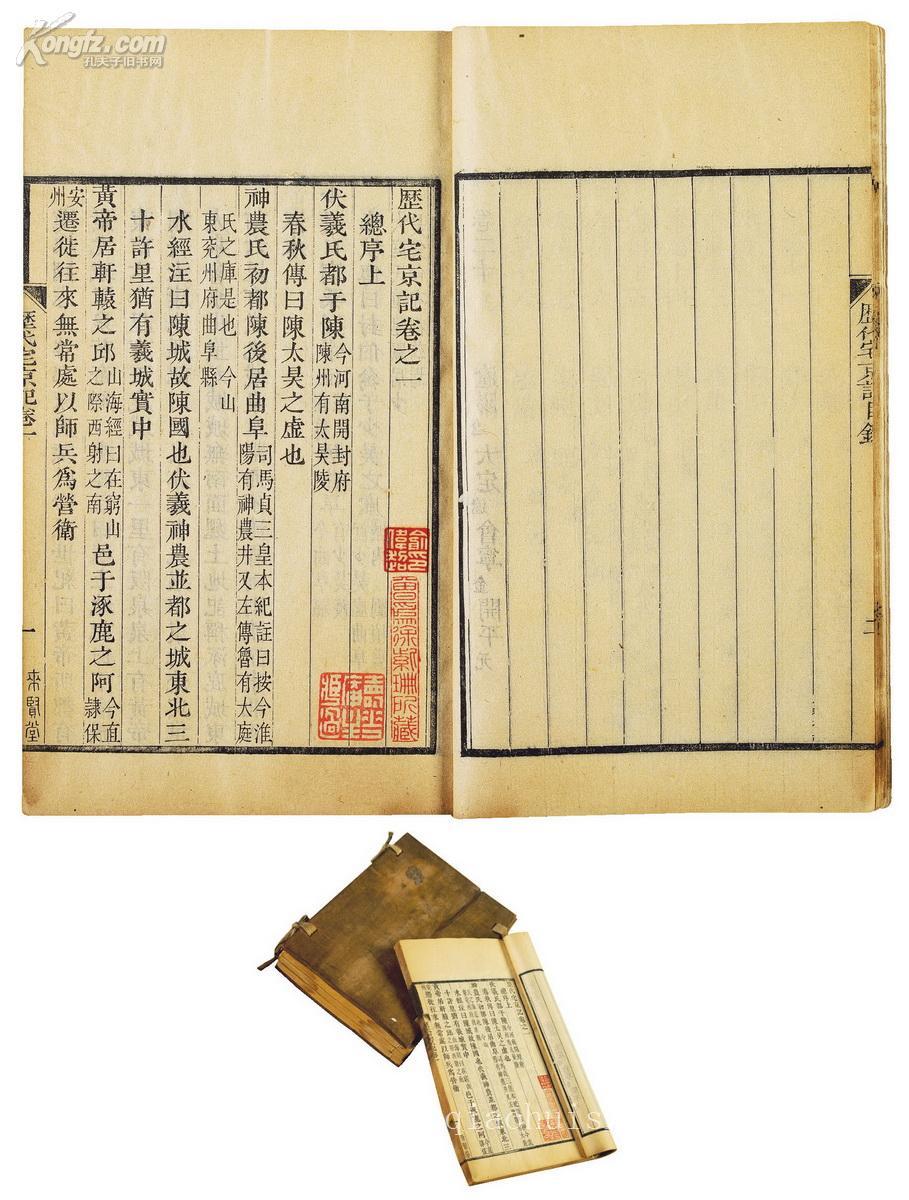 Kongfz.com
孔夫子旧书网
歴代宅京記目錄
二
歴代宅京記卷之一
總序上
伏羲氏都于陳今河南開封府陳州有太昊陵
春秋傳曰陳太昊之虛也
神農氏初都陳後居曲阜司馬貞三皇本紀註曰按今淮陽有神農井又左傳魯有大庭
氏之庫是也今山東兖州府曲阜縣
水經注曰陳城故陳國也伏羲神農並都之城東北三
十許里猶有羲城實中
黃帝居軒轅之邱山海經曰在窮山之際西射之南邑于涿鹿之阿今直隸保
安州遷徙往來無常處以師兵爲營衛
歴代宅京記卷一
一
來賢堂
曾爲徐紫珊所藏
qiaohuis